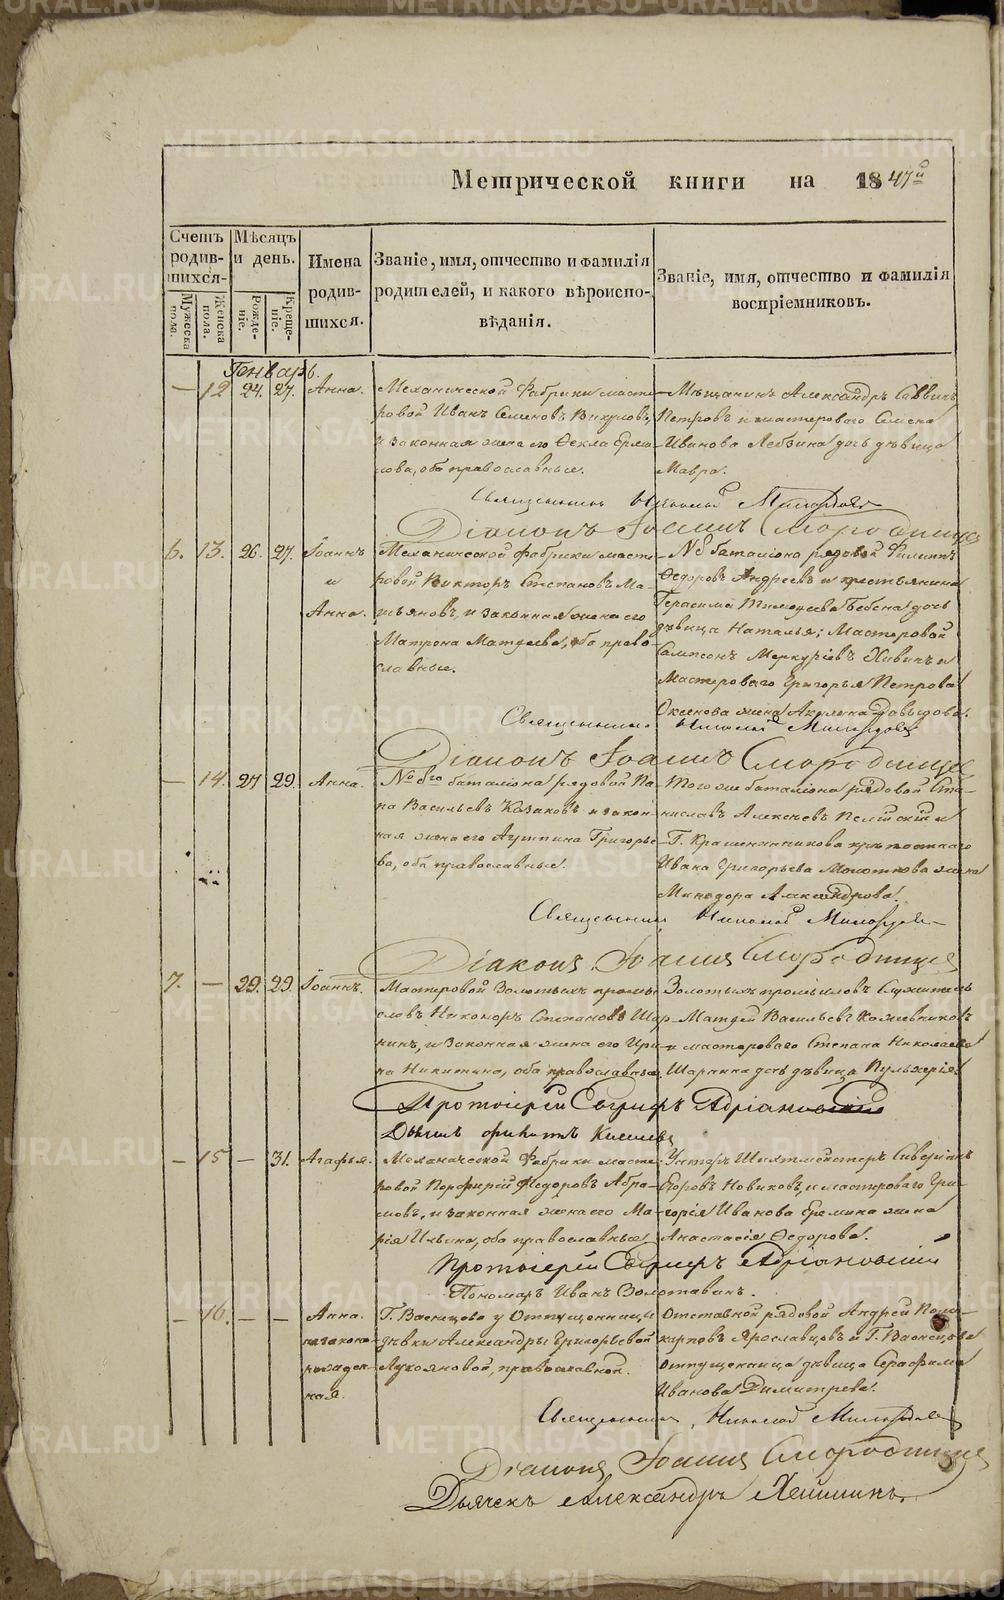 METRIKI.GASO-URAL.RU
Метрической книги на 1847й
Счетъ родив-шихся
Мужеска пола.
Женска пола.
Мѣсяцъ и день.
Рожде-ніе.
Креще-ніе.
Имена родив-шихся.
Званіе, имя, отчество и фамилія
родителей, и какого вѣроиспо-
вѣданія.
Званіе, имя, отчество и фамилія
воспріемниковъ.
Генварь.
— 12 24. 27. Анна.
Механической Фабрики масте-
ровой Иванъ Семеновъ Викуловъ,
и законная жена его Ѳекла Ерми-
лова, оба православные.
Мѣщанинъ Александръ Саввинъ
Петровъ и мастероваго Семена
Иванова Лебзина дочь дѣвица
Мавра.
Священникъ Николай
Діаконъ Іоаннъ Смородинцевъ
6. 13. 26. 27. Іоаннъ
и
Анна.
Механической фабрики масте-
ровой Викторъ Степановъ Ма-
и законная жена его
Матрона Матѳеева, оба право-
славные.
№8 баталіона рядовой Филиппъ
Ѳедоровъ Андреевъ и крестьянина
Герасима Тимоѳеева дочь
дѣвица Наталья; Мастеровой
Сампсонъ Меркуріевъ и
Мастероваго Григорья Петрова
жена Акулина Давыдова.
Священникъ Николай
Діаконъ Іоаннъ Смородинцевъ
— 14. 27 29. Анна.
№ 8го баталіона рядовой
Васильевъ Казаковъ и закон-
ная жена его Григорье-
ва, оба православные.
Того же баталіона рядовой Ста-
ниславъ Алексѣевъ и
Г. крѣпостнаго
Ивана Григорьева Молоткова жена
Минодора Александрова.
Священникъ Николай
Діаконъ Іоаннъ Смородинцевъ
7. — 29. 29. Іоаннъ.
Мастеровой Золотыхъ промы-
словъ Никоноръ Степановъ Шар-
нинъ, и законная жена его Ири-
на Никитина, оба православные.
Золотыхъ промысловъ Служитель
Матѳей Васильевъ Кожевниковъ
и мастероваго Степана Николаева
Шарнина дочь дѣвица Пульхерія.
Протоіерей Адріановскій
— 15 — 31. Агафья.
Механической Фабрики масте-
ровой Порфирій Ѳедоровъ Абра-
мовъ, и законная жена его Ма-
рія Ильина, оба православные
Унтеръ Шихтмейстеръ Сиверіанъ
Егоровъ Новиковъ, и мастероваго Гри-
горія Иванова Еремина жена
Анастасія Ѳедорова.
Протоіерей Адріановскій
Пономарь Иванъ Золотавинъ.
— 16. — — Анна.
незаконо-
рожден-
ная.
Г. Васнецова у Отпущенницы
дѣвки Александры Григорьевой
Лукояновой, православной.
Отставной рядовой Андрей Поли-
карповъ Ярославцовъ и Г. Васнецова
отпущенница дѣвица Серафима
Иванова Димитрева.
Священникъ Николай
Діаконъ Іоаннъ Смородинцевъ
Дьячекъ Александръ